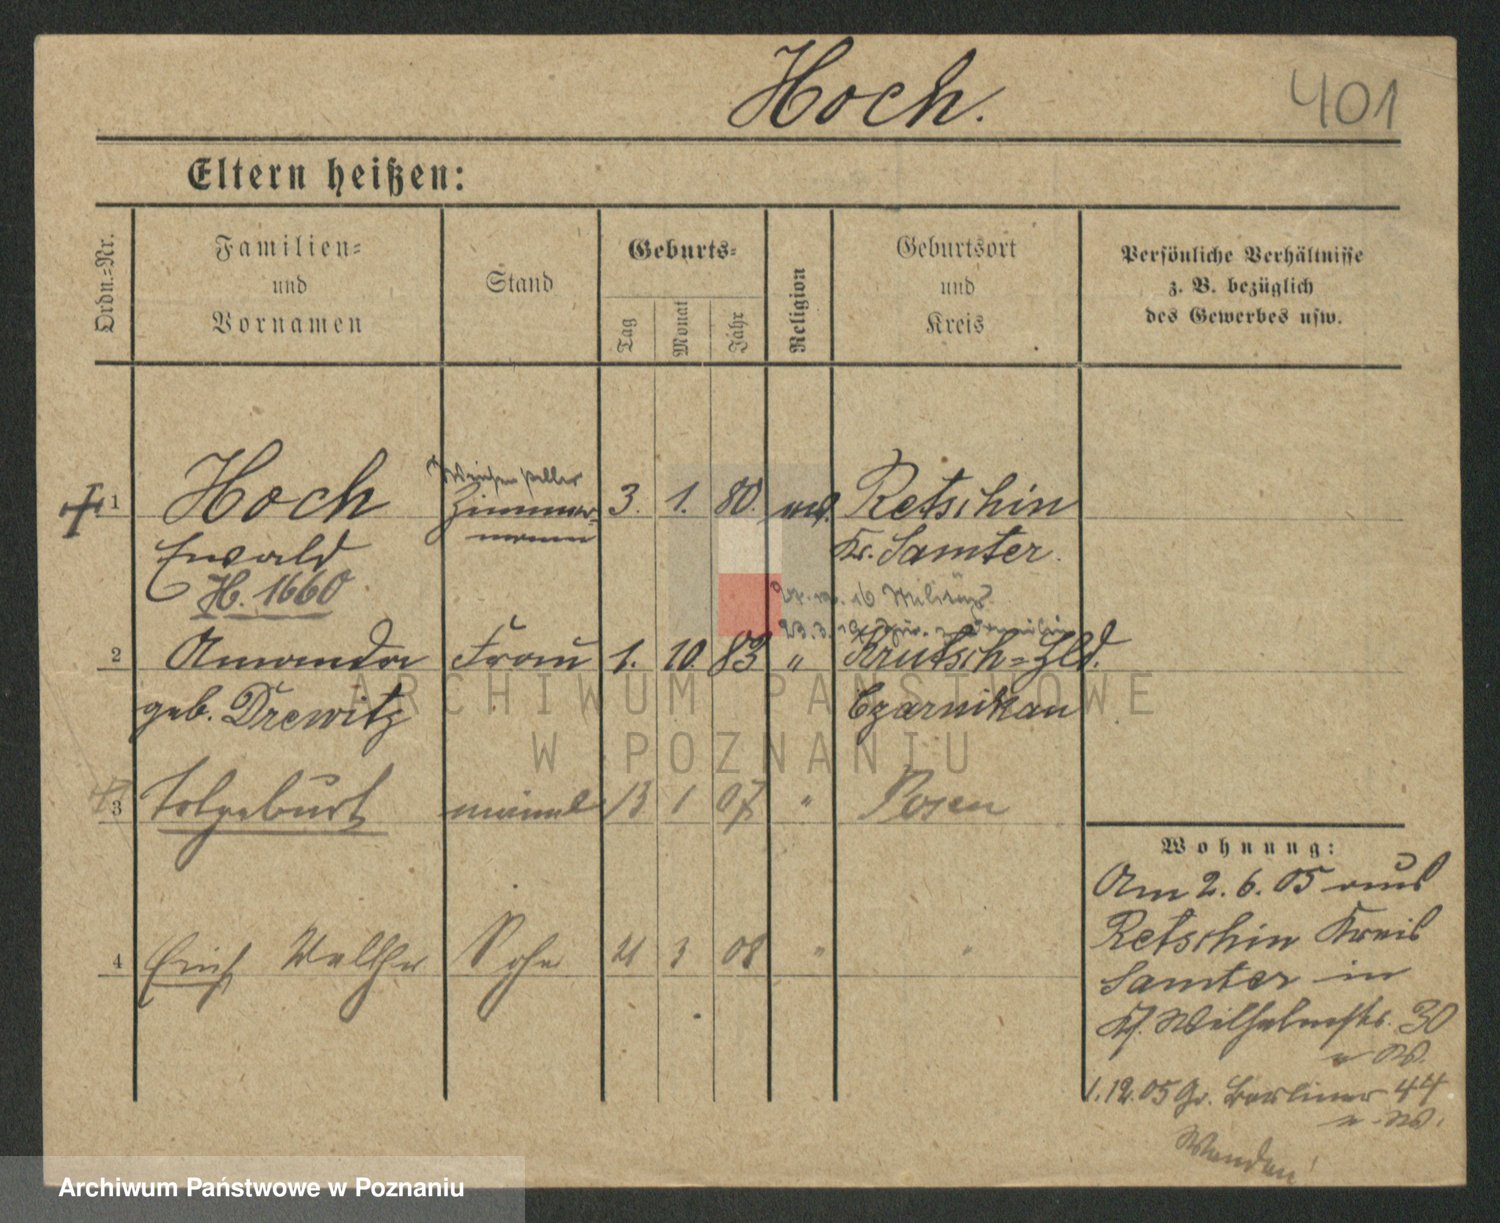 Hoch.
401
Eltern heißen:
Ordn.=Nr.
Familien=
und
Vornamen
Stand
Geburts=
Tag
Monat
Jahr
Religion
Geburtsort
und
Kreis
Persönliche Verhältnisse
z. B. bezüglich
des Gewerbes usw.
1 Hoch Zimmer= 3. 1. 80. Retschin
mann
Ewald Kr. Samter.
H. 1660
16 Militär
2 Amanda Frau 1. 10. 83 " Krutsch=Hld.
geb. Drewitz Czarnikau
3 Totgeburt männl 13 1 07 " Posen
4 Erich Walther Sohn 21 3 08 " "
Wohnung:
Am 2. 6. 05 aus
Retschin Kreis
Samter in
Kl. Wilhelmstr. 30
1. 12. 05 Gr. Berliner 44
Wenden!
ARCHIWUM PAŃSTWOWE
W POZNANIU
Archiwum Państwowe w Poznaniu